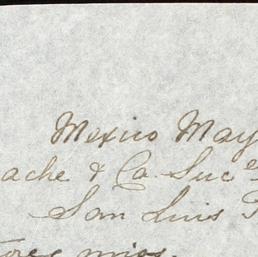 Mexico May
ache & Ca. Suc es
San Luis P
ores mios.